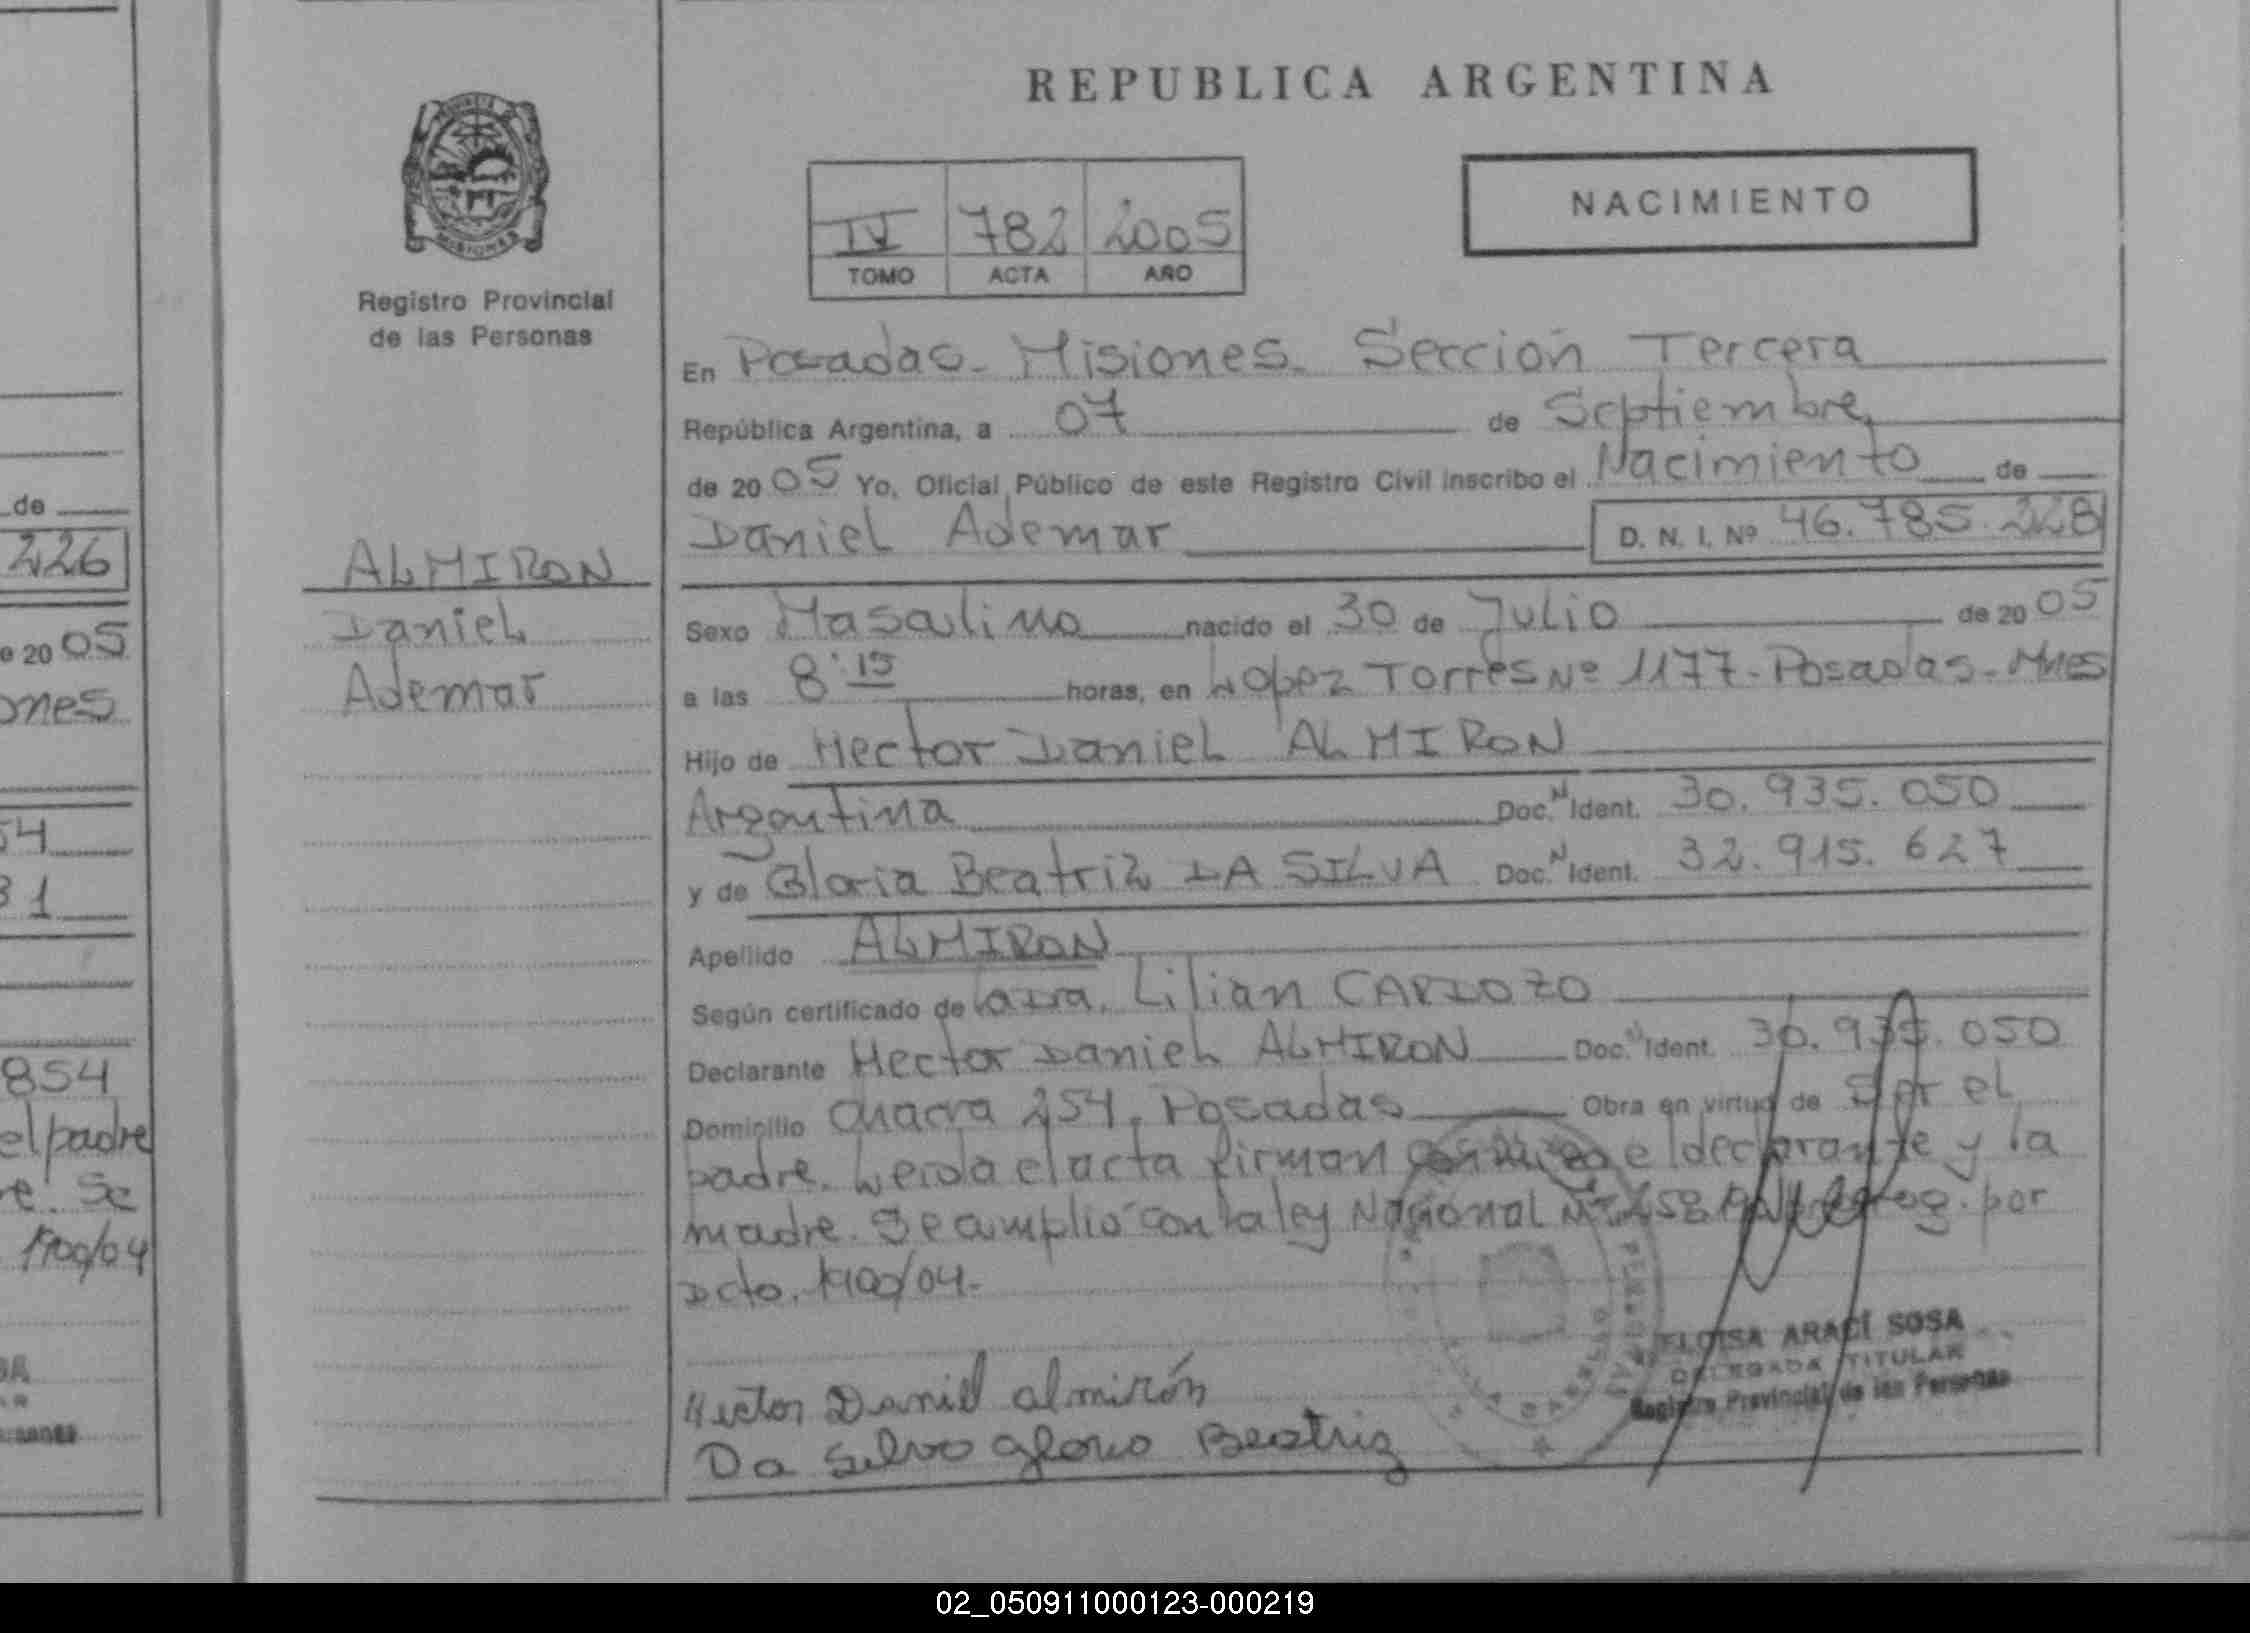 REPUBLICA ARGENTINA
NACIMIENTO
IV 782 2005
TOMO ACTA AÑO
MISIONES
Registro Provincial
de las Personas
En Posadas - Misiones - Sección Tercera
República Argentina, a 07 de Septiembre
de 2005 Yo, Oficial Público de este Registro Civil inscribo el Nacimiento de
Daniel Ademar D. N. I. Nº 46.785.228
ALMIRON
Daniel
Ademar
Sexo Masculino nacido el 30 de Julio de 2005
a las 8:15 horas, en Lopez Torres Nº 1177 - Posadas - Mnes
Hijo de Hector Daniel ALMIRON
Argentina Doc. N Ident. 30.935.050
y de Gloria Beatriz DA SILVA Doc. N Ident. 32.915.627
Apellido ALMIRON
Según certificado de la Dra. Lilian CARDOZO
Declarante Hector Daniel ALMIRON Doc. N Ident. 30.935.050
Domicilio Chacra 254. Posadas Obra en virtud de Ser el
padre. Leida el acta firman el declarante y la
madre. Se amplió con la ley Nacional por
Dcto. 1900/04.
Hector Daniel Almirón
Da Silva Gloria Beatriz
ELOISA ARACÍ SOSA
DELEGADA TITULAR
Registro Provincial de las Personas
de
226
e 2005
ones
54
31
854
el padre
re. Se
1900/04
02_050911000123-000219